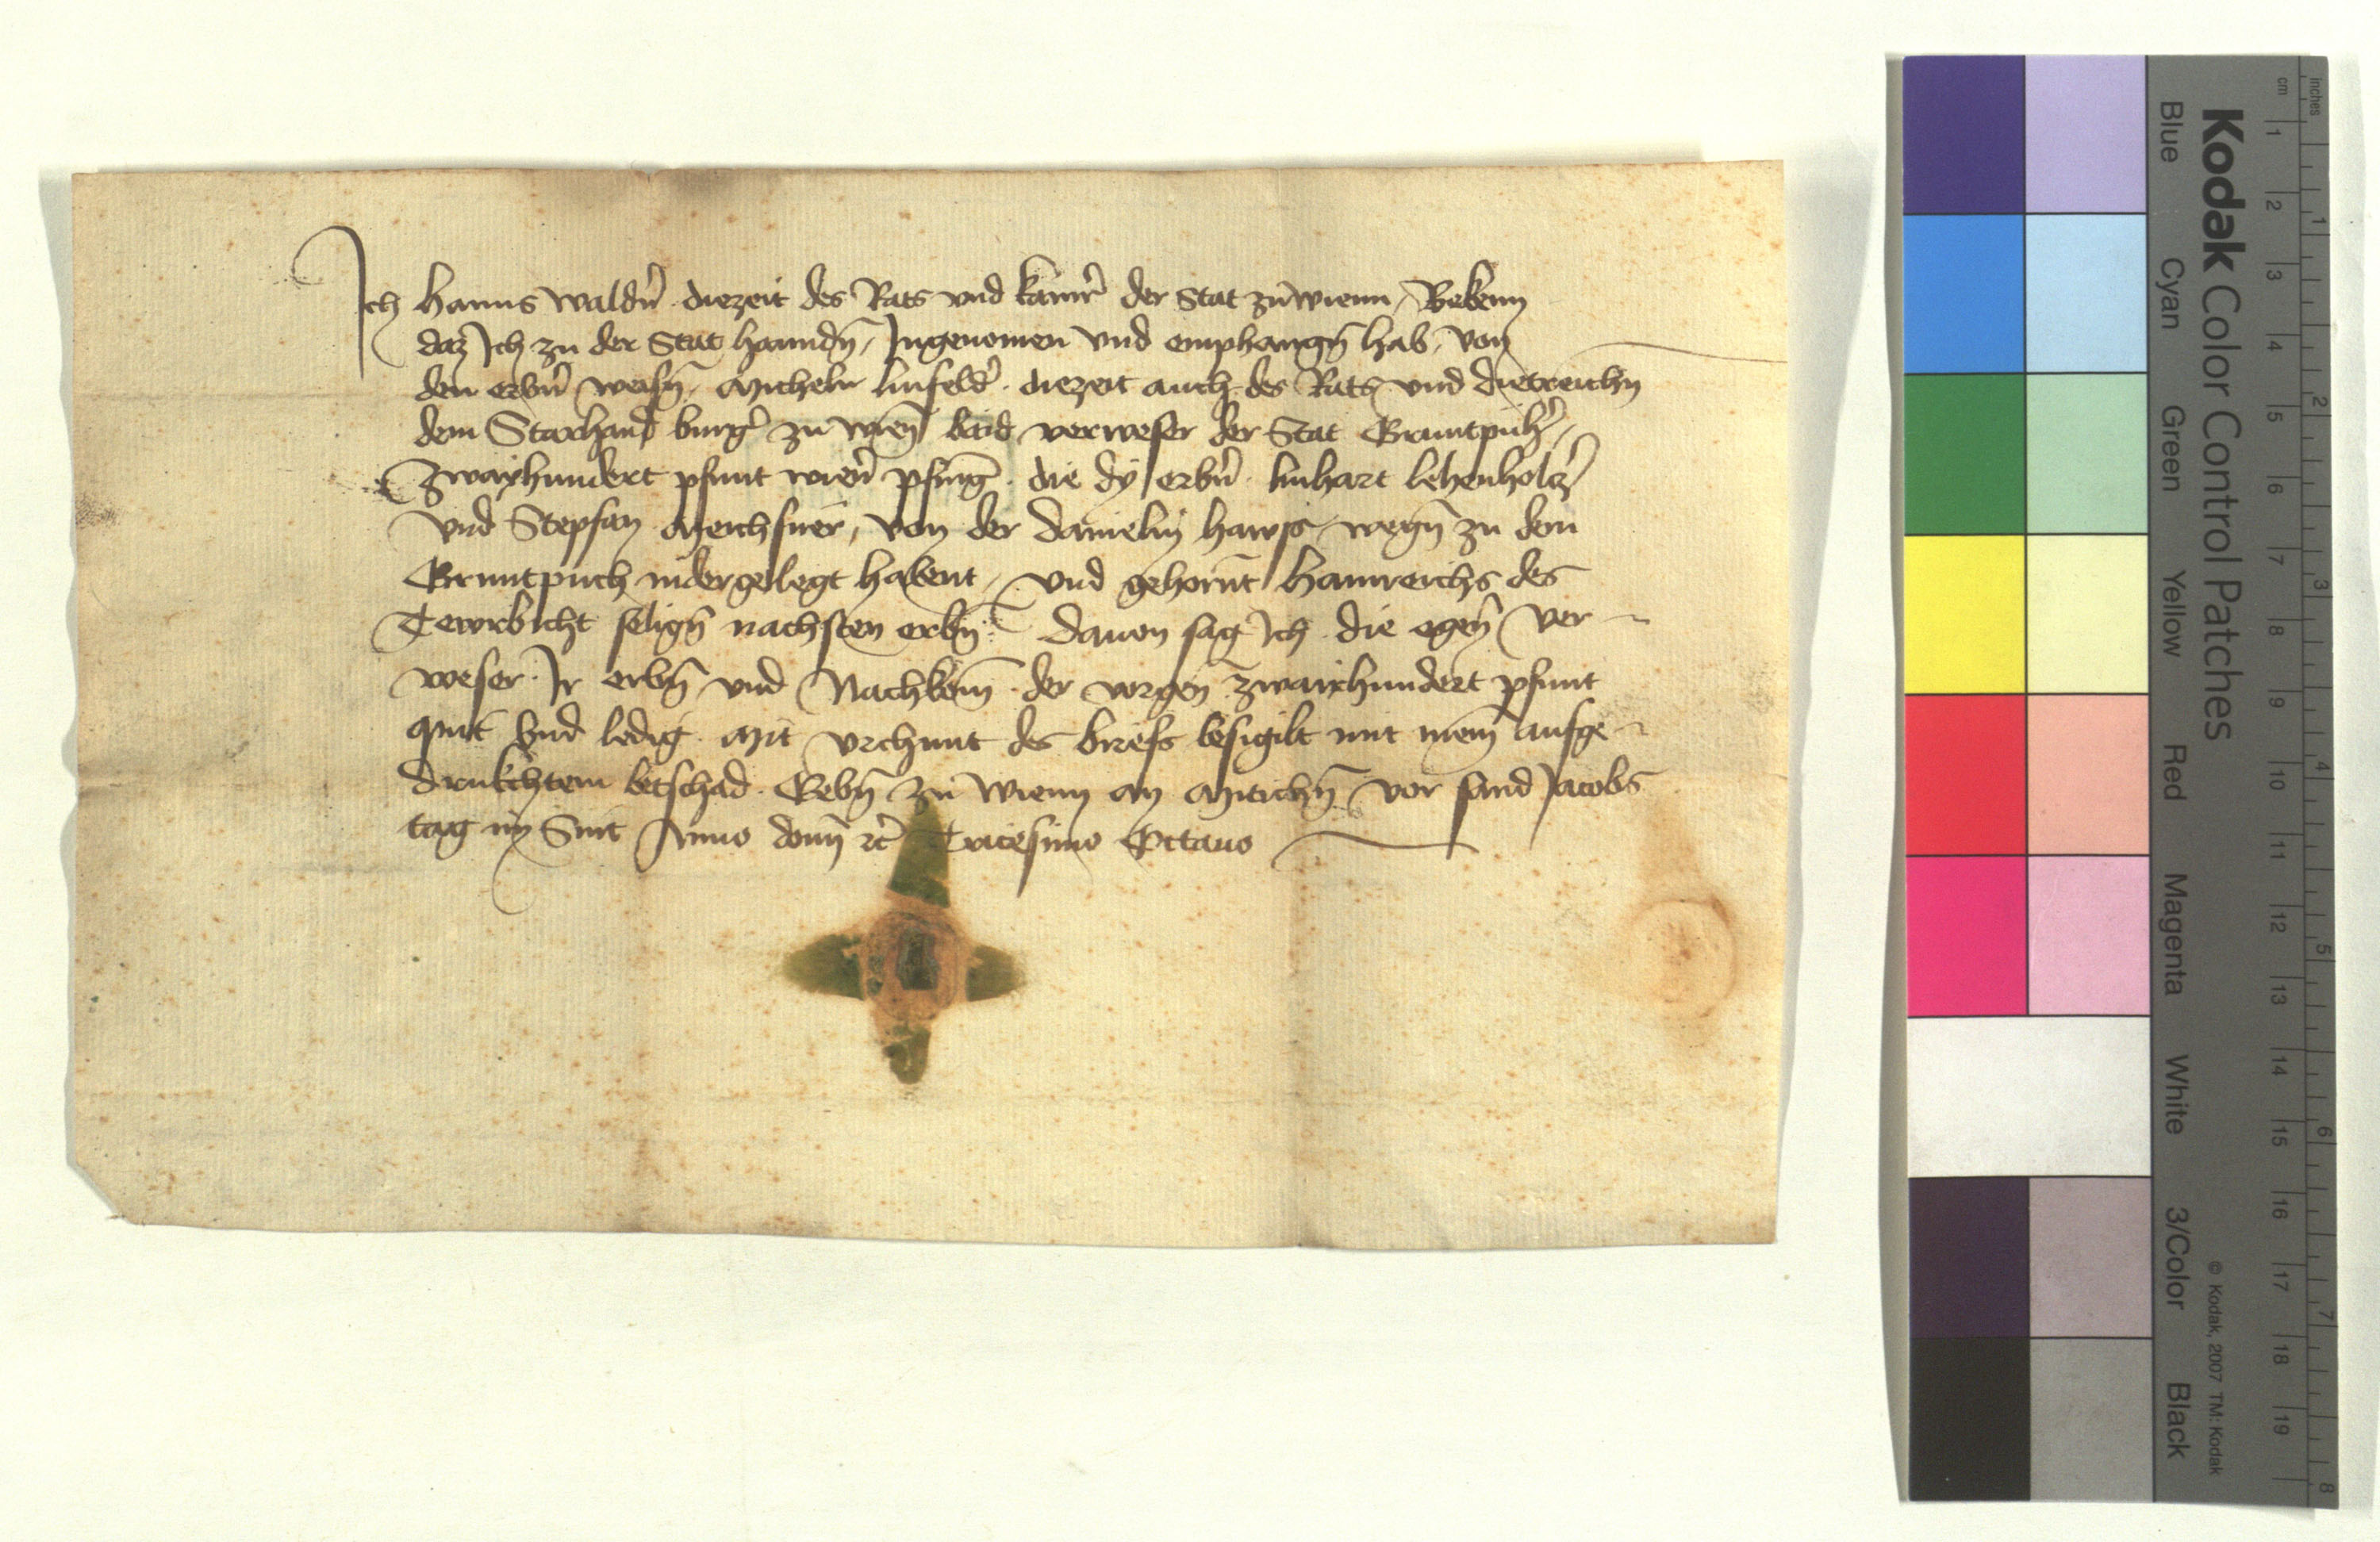 Ich Hanns Waldn̄ diezeit des Rats vnd kamr̄ der Stat zu Wienn, Bekenn
daz Ich zu der Stat hanndn̄, Ingenomen vnd emphangn̄ hab, von
den erbn̄ weisn̄, Micheln linfeld̄ diezeit auch des Rats vnd dietreichn
dem Starhand burḡ zu wienn̄ baid verweser der Stat Gruntpuh̄,
Zwayhundert pfunt wien̄ pfinḡ die dy erbn̄ linhart lehenholtz̄
vnd Stepfan Meichsner, von der Danielin hawss wegn̄ zu dem
Gruntpuch nidergelegt habent, vnd gehorn̄t Hannreichs des
Tewrbicht selign̄ nachsten erbn̄ Dauon sag Ich die egen̄ ver
weser Ir erbn̄ vnd Nachkom̄ der vorgen̄ zwaixhundert pfunt
quit vnd ledig Mit vrchunt des briefs besigilt mit meim̄ aufge
drukchtem betschad Gebn̄ zu Wienn an Mitichn̄ vor sand Jacobs
tag im Snit Anno domī rc̄ Tricesimo Octauo
Kodak Color Control Patches
Blue Cyan Green Yellow Red Magenta White 3/Color Black
© Kodak, 2007 TM: Kodak
inches 1 2 3 4 5 6 7 8
cm 1 2 3 4 5 6 7 8 9 10 11 12 13 14 15 16 17 18 19